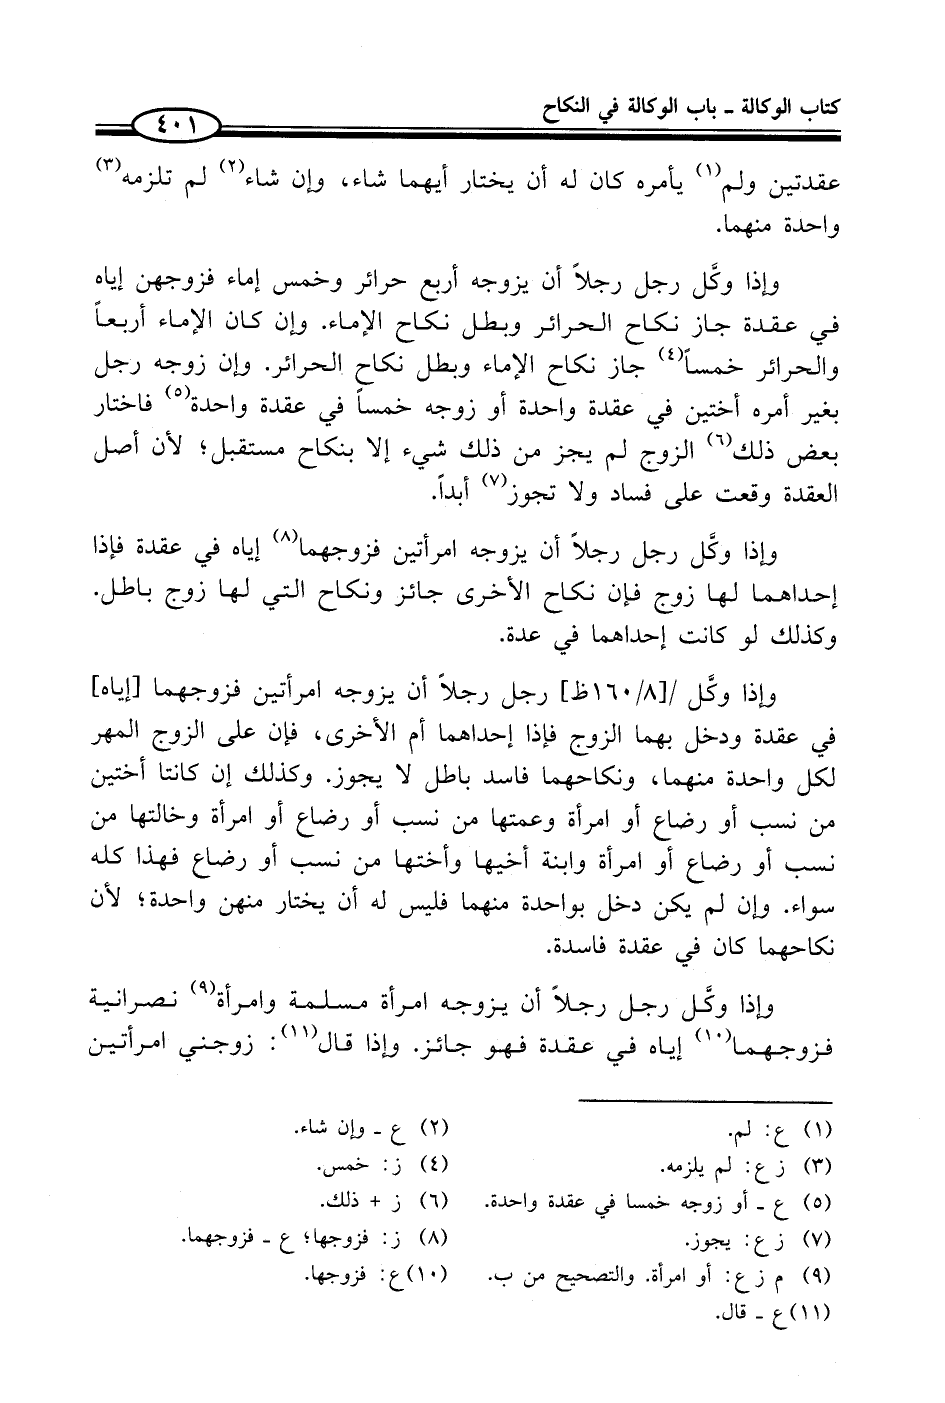 كتاب الوكالة - باب الوكالة في النكاح
٤٠١
عقدتين ولم(١) يأمره كان له أن يختار أيهما شاء، وإن شاء(٢) لم تلزمه(٣)
واحدة منهما.
وإذا وكَّل رجل رجلاً أن يزوجه أربع حرائر وخمس إماء فزوجهن إياه
في عقدة جاز نكاح الحرائر وبطل نكاح الإماء. وإن كان الإماء أربعاً
والحرائر خمساً(٤) جاز نكاح الإماء وبطل نكاح الحرائر. وإن زوجه رجل
بغير أمره أختين في عقدة واحدة أو زوجه خمساً في عقدة واحدة(٥) فاختار
بعض ذلك(٦) الزوج لم يجز من ذلك شيء إلا بنكاح مستقبل؛ لأن أصل
العقدة وقعت على فساد ولا تجوز(٧) أبداً.
وإذا وكَّل رجل رجلاً أن يزوجه امرأتين فزوجهما(٨) إياه في عقدة فإذا
إحداهما لها زوج فإن نكاح الأخرى جائز ونكاح التي لها زوج باطل.
وكذلك لو كانت إحداهما في عدة.
وإذا وكَّل /[١٦٠/٨ظ] رجل رجلاً أن يزوجه امرأتين فزوجهما [إياه]
في عقدة ودخل بهما الزوج فإذا إحداهما أم الأخرى، فإن على الزوج المهر
لكل واحدة منهما، ونكاحهما فاسد باطل لا يجوز. وكذلك إن كانتا أختين
من نسب أو رضاع أو امرأة وعمتها من نسب أو رضاع أو امرأة وخالتها من
نسب أو رضاع أو امرأة وابنة أخيها وأختها من نسب أو رضاع فهذا كله
سواء. وإن لم يكن دخل بواحدة منهما فليس له أن يختار منهن واحدة؛ لأن
نكاحهما كان في عقدة فاسدة.
وإذا وكَّل رجل رجلاً أن يزوجه امرأة مسلمة وامرأة(٩) نصرانية
فزوجهما(١٠) إياه في عقدة فهو جائز. وإذا قال(١١): زوجني امرأتين
(١) ع: لم.
(٢) ع - وإن شاء.
(٣) ز ع: لم يلزمه.
(٤) ز: خمس.
(٥) ع - أو زوجه خمسا في عقدة واحدة.
(٦) ز + ذلك.
(٧) ز ع: يجوز.
(٨) ز: فزوجها؛ ع - فزوجهما.
(٩) م ز ع: أو امرأة. والتصحيح من ب.
(١٠) ع: فزوجها.
(١١) ع - قال.